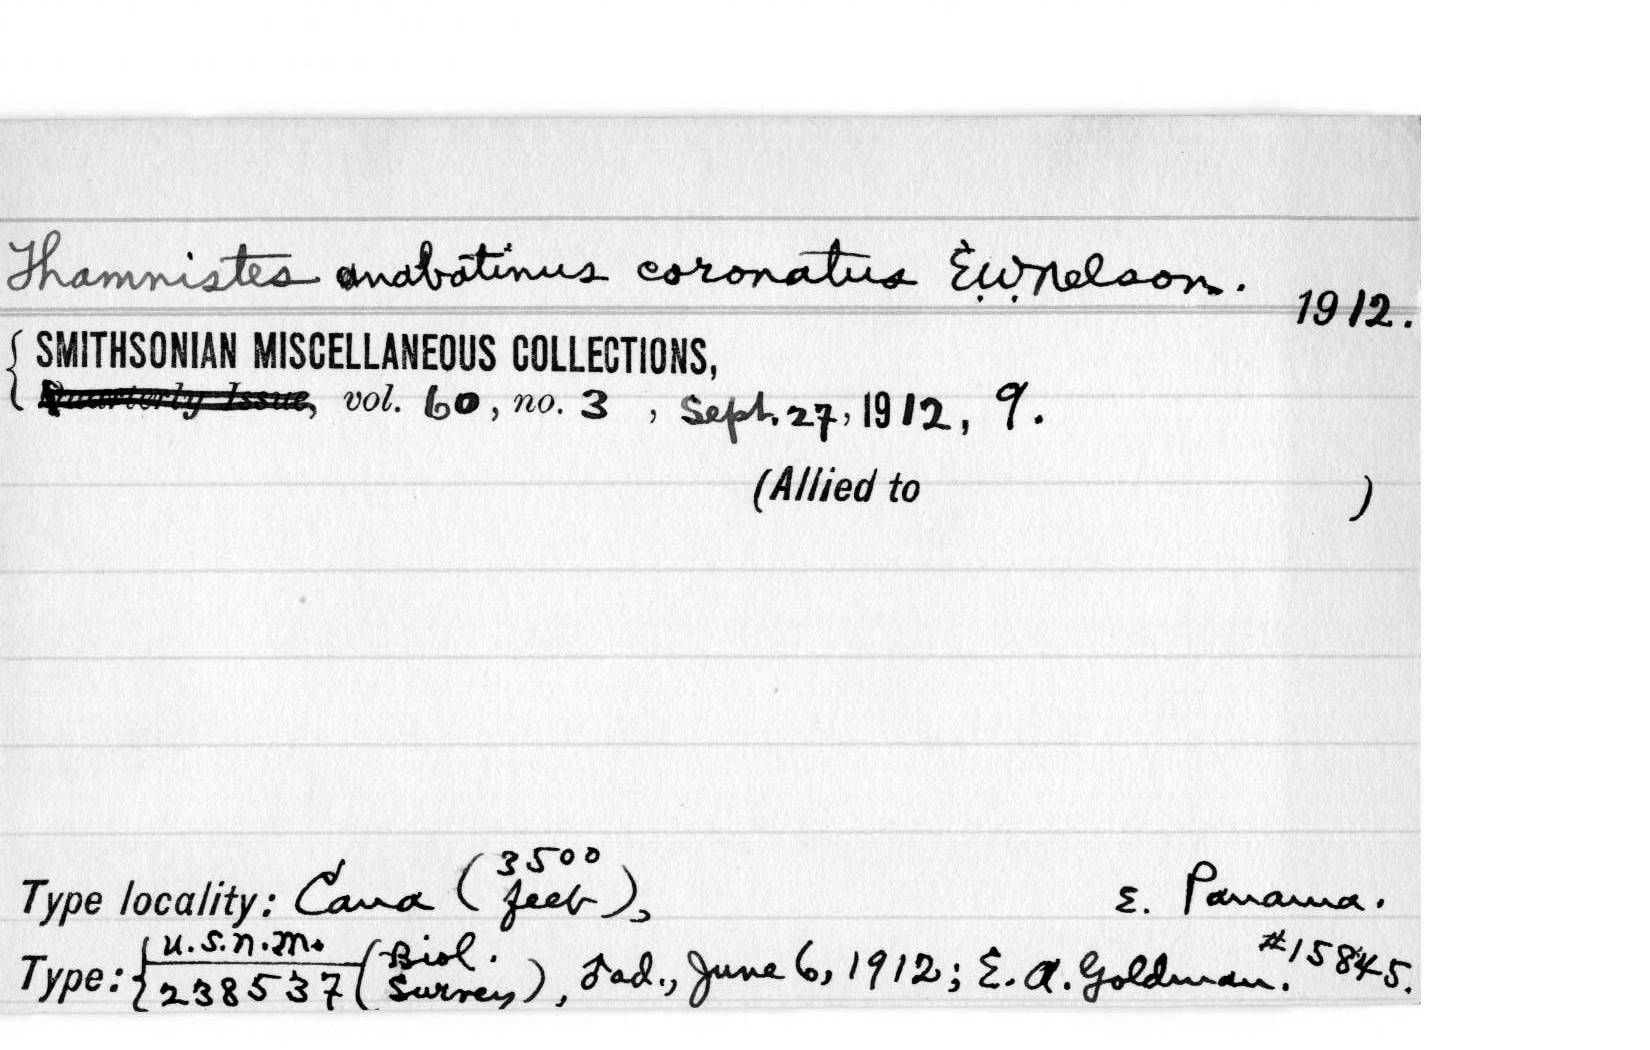 Thamnistes anabatinus coronatus E.W. Nelson.
1912.
{ SMITHSONIAN MISCELLANEOUS COLLECTIONS,
Quarterly Issue, vol. 60, no. 3, Sept. 27, 1912, 9.
(Allied to )
Type locality: Cana (3500 feet), E. Panama.
Type: { U.S.N.M. 238537 (Biol. Survey), ♂ ad., June 6, 1912; E. A. Goldman. #15845.